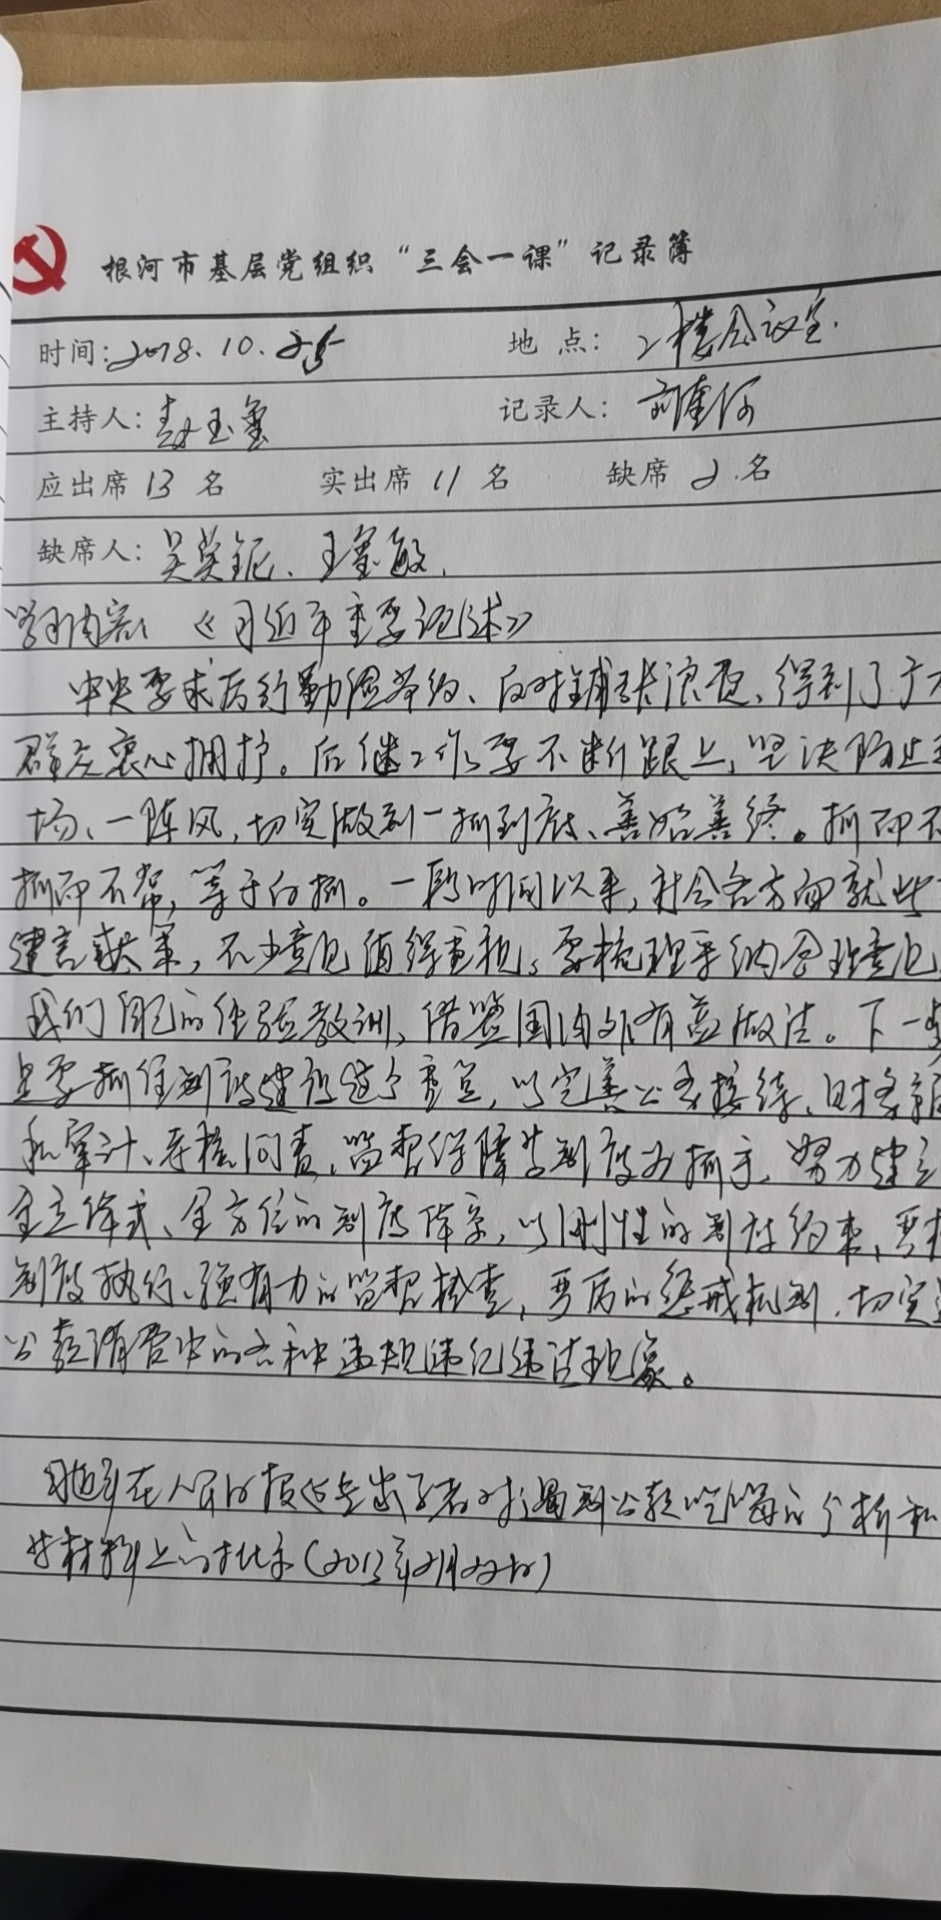 根河市基层党组织“三会一课”记录簿
时间:2018.10.25 地点:2楼会议室.
主持人: 玉玺 记录人:
应出席 13 名 实出席 11 名 缺席 2.名
缺席人:吴英 、王玺敏.
学习内容: 《习近平重要论述》
中央要求厉行勤俭节约、反对铺张浪费、得到了广大
群众衷心拥护。后继工作要不断跟上,坚决防止走
场、一阵风,切实做到一抓到底、善始善终。抓而不
抓而不常,等于白抓。一段时间以来,社会各方面就此
建言献策,不少意见值得重视。要梳理采纳合理意见
我们自己的经验教训,借鉴国内外有益做法。下一步
是要抓住制度建设这个重点,以完善公务接待、财务
和审计、考核问责、监督保障等制度为抓手,努力建立
全立体式、全方位的制度体系,以刚性的制度约束、严格
制度执行、强有力的监督检查,严厉的惩戒机制.切实
公款消费中的各种违规违纪违法现象。
习近平在人民日报 专家学者对遏制公款吃喝的分析和
等材料上的批示(2013年2月22日)